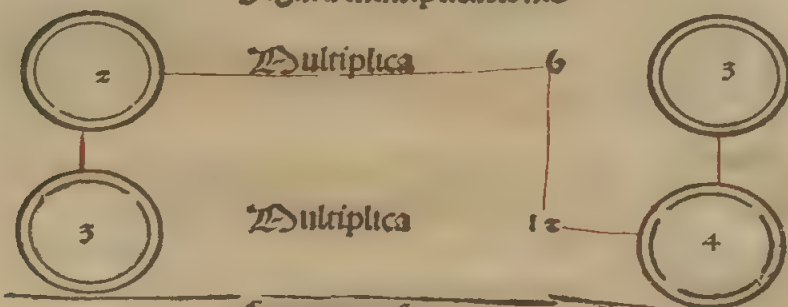 2 Multiplica 6 3
3 Multiplica 12 4